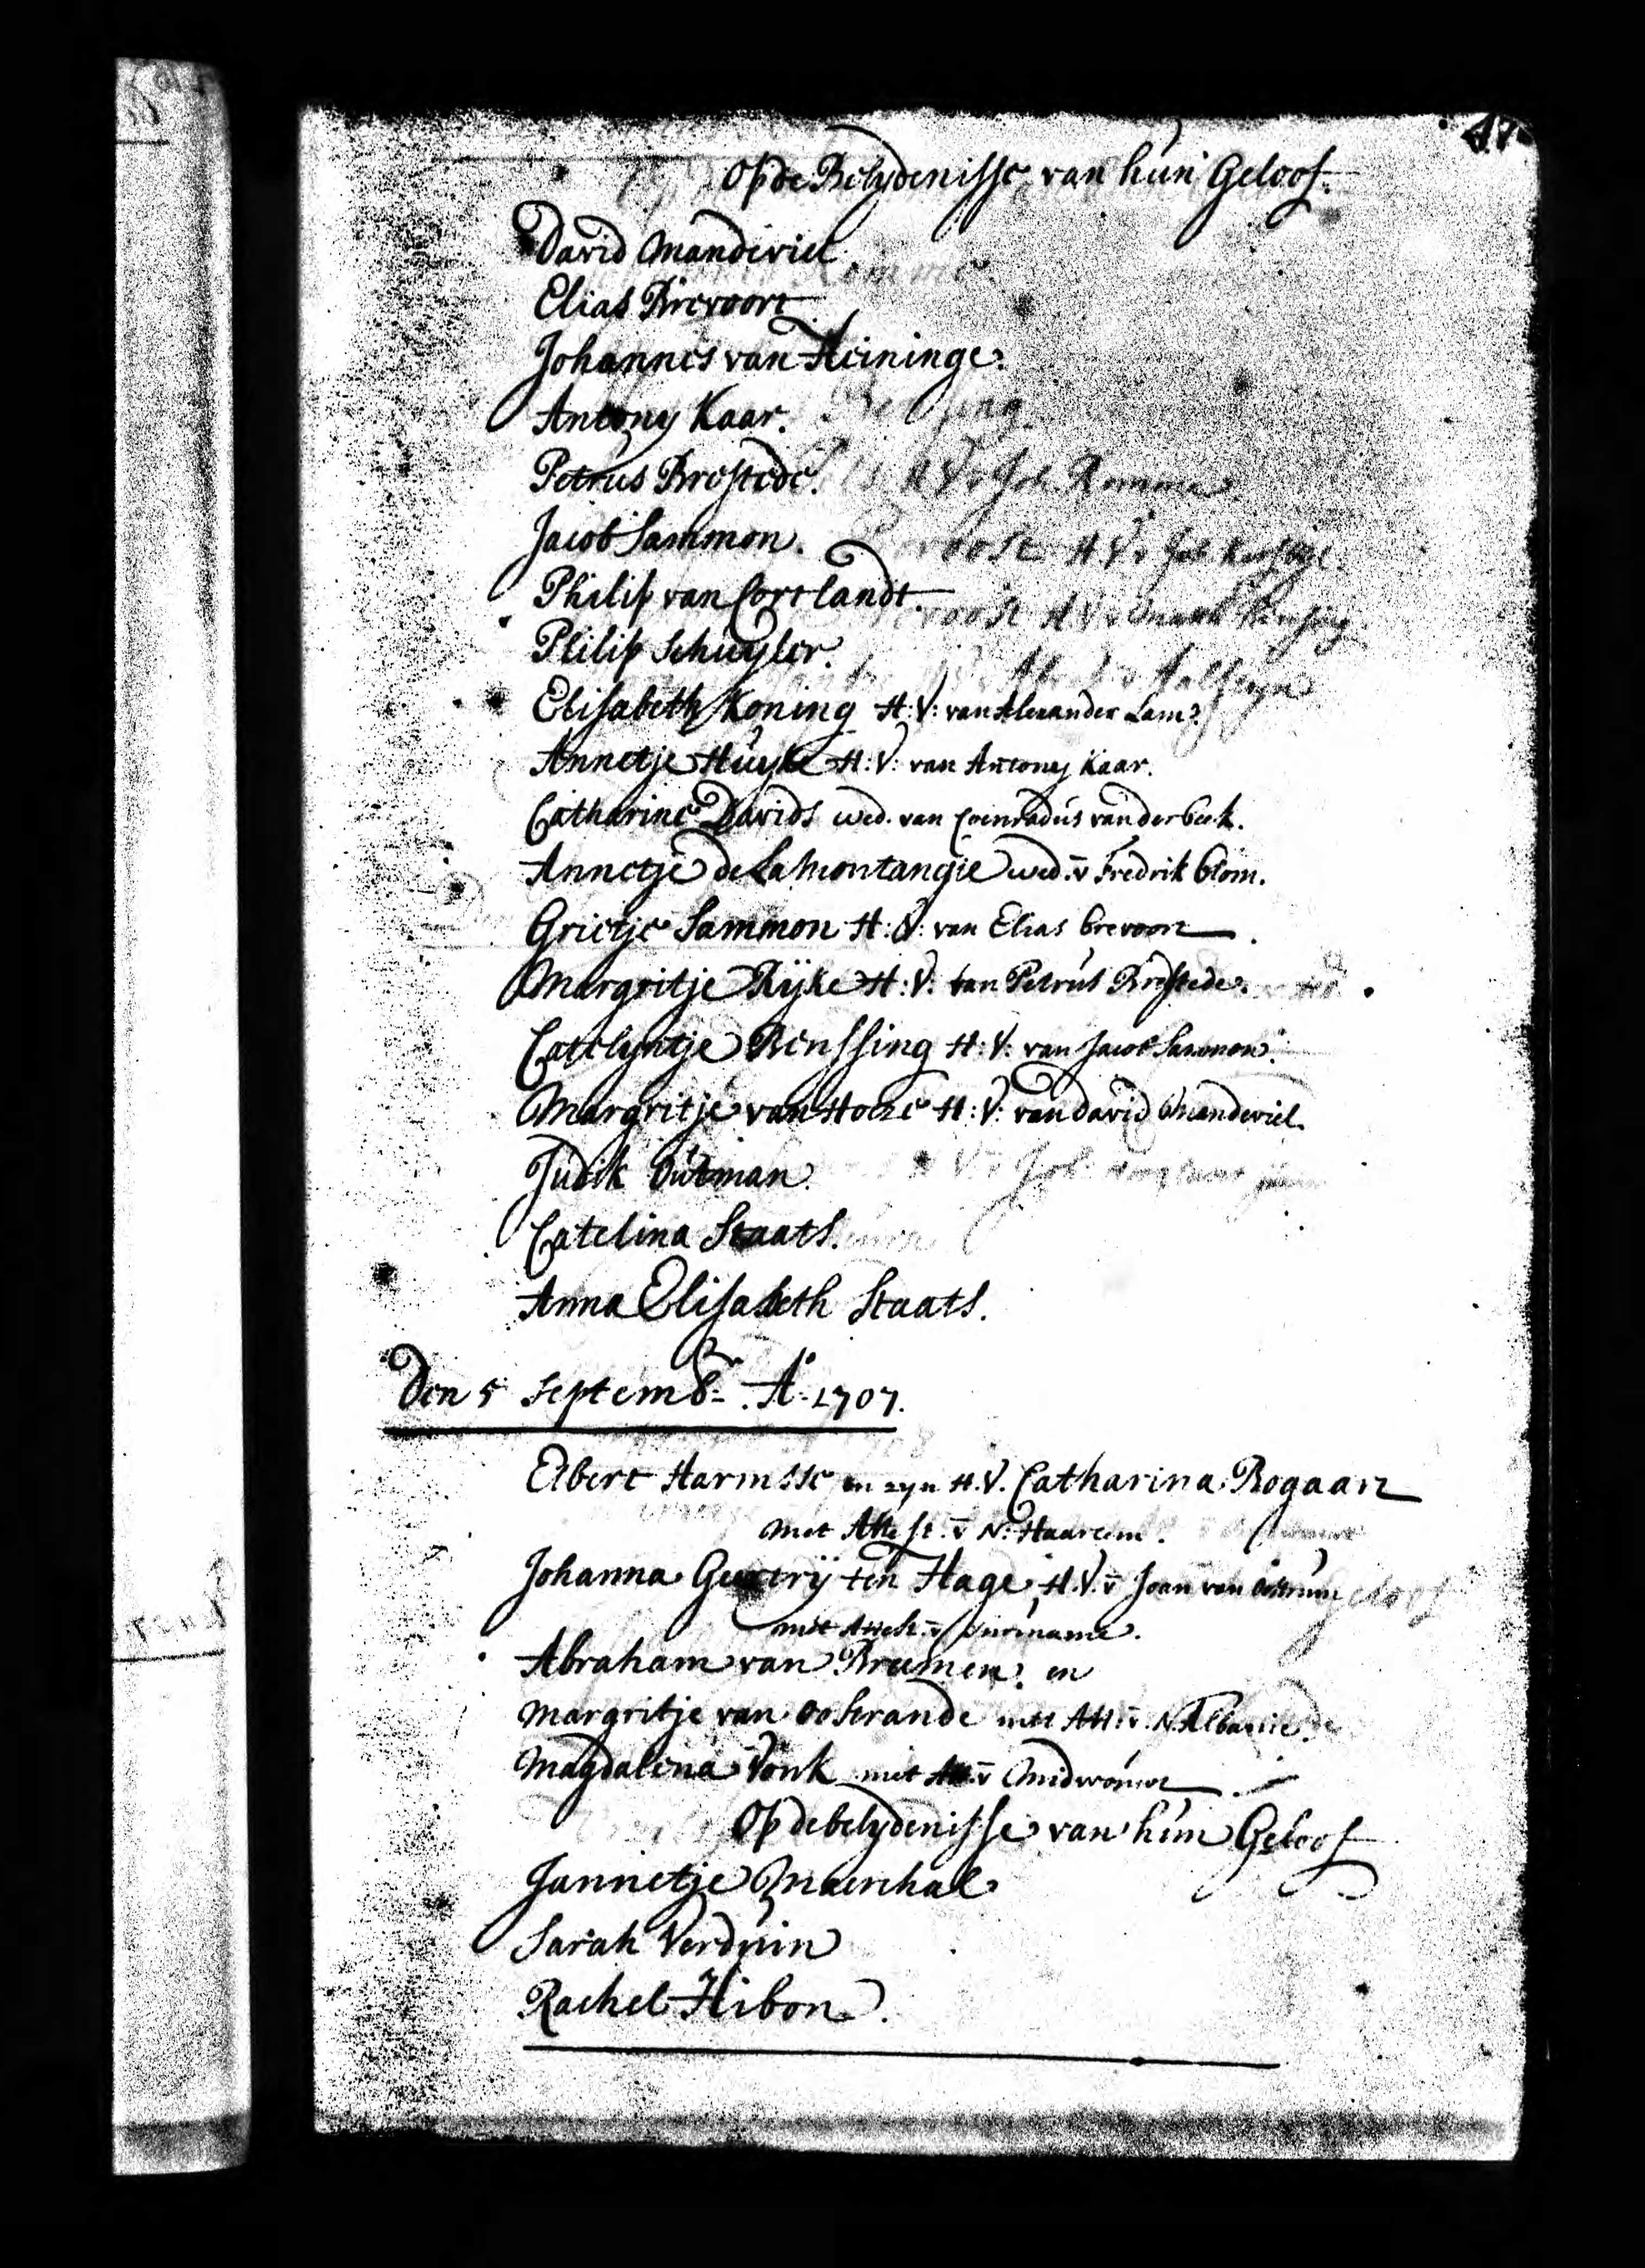 47
Op de Belydenisse van hun Geloof.
David Manderiel.
Elias Brevoort
Johannes van Heininge.
Antony Kaar.
Petrus Brestede.
Jacob Sammon.
Philip van Cortlandt.
Philip Schuyler.
Elisabeth Koning H:V: van Alexander Lam?
Annetje Huyke H:V: van Antony Kaar.
Catharine Davids wed. van Coenradus vanderbeek.
Annetje de Lamontangie wed. v Fredrik blom.
Grietje Sammon H:V: van Elias brevoort.
Margritje Ryke H:V: van Petrus Brestede.
Catelyntje Benssing H:V: van Jacob Sammon.
Margritje van Hoese H:V: van David Manderiel.
Judik Outman.
Catelina Staats.
Anna Elisabeth Staats.
Den 5 Septemb. Ao 1707.
Elbert Harmsse en zyn H.V. Catharina Bogaart
met Attest. v N. Haarlem.
Johanna ten Hage, H.V. v Joan van
met Attest. v Suriname.
Abraham van Bremen, en
Margritje van Oostrande met Att. v. N. Albanie.
Magdalena Vonk met Att. v Midwout.
Op de belydenisse van hun Geloof
Jannetje Maerchal
Sarah Verduin
Rachel Hibon.